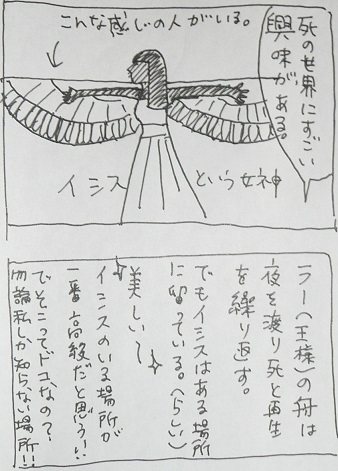 死の世界にすごい
興味がある。
こんな感じの人がいる。
イシス という女神
ラー(王様)の舟は
夜を渡り死と再生
を繰り返す。
でもイシスはある場所
に留っている。(らしい)
美しい〜
イシスのいる場所が
一番高級だと思う!!
でそこってドコなの?
勿論私しか知らない場所!!